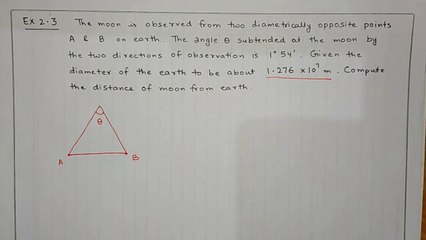 Ex 2.3 The moon is observed from two diametrically opposite points
A & B on earth. The angle θ subtended at the moon by
the two directions of observation is 1° 54'. Given the
diameter of the earth to be about 1.276 × 10⁷ m. Compute
the distance of moon from earth.
θ
A B